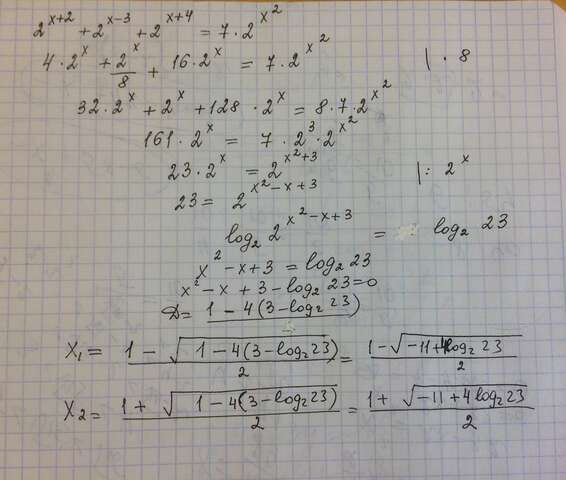 2^{x+2} + 2^{x-3} + 2^{x+4} = 7 · 2^{x^2}
4 · 2^x + \frac{2^x}{8} + 16 · 2^x = 7 · 2^{x^2} | · 8
32 · 2^x + 2^x + 128 · 2^x = 8 · 7 · 2^{x^2}
161 · 2^x = 7 · 2^3 · 2^{x^2}
23 · 2^x = 2^{x^2+3} | : 2^x
23 = 2^{x^2-x+3}
log_2 2^{x^2-x+3} = log_2 23
x^2 - x + 3 = log_2 23
x^2 - x + 3 - log_2 23 = 0
D = 1 - 4(3 - log_2 23)
x_1 = \frac{1 - \sqrt{1 - 4(3 - log_2 23)}}{2} = \frac{1 - \sqrt{-11 + 4log_2 23}}{2}
x_2 = \frac{1 + \sqrt{1 - 4(3 - log_2 23)}}{2} = \frac{1 + \sqrt{-11 + 4 log_2 23}}{2}